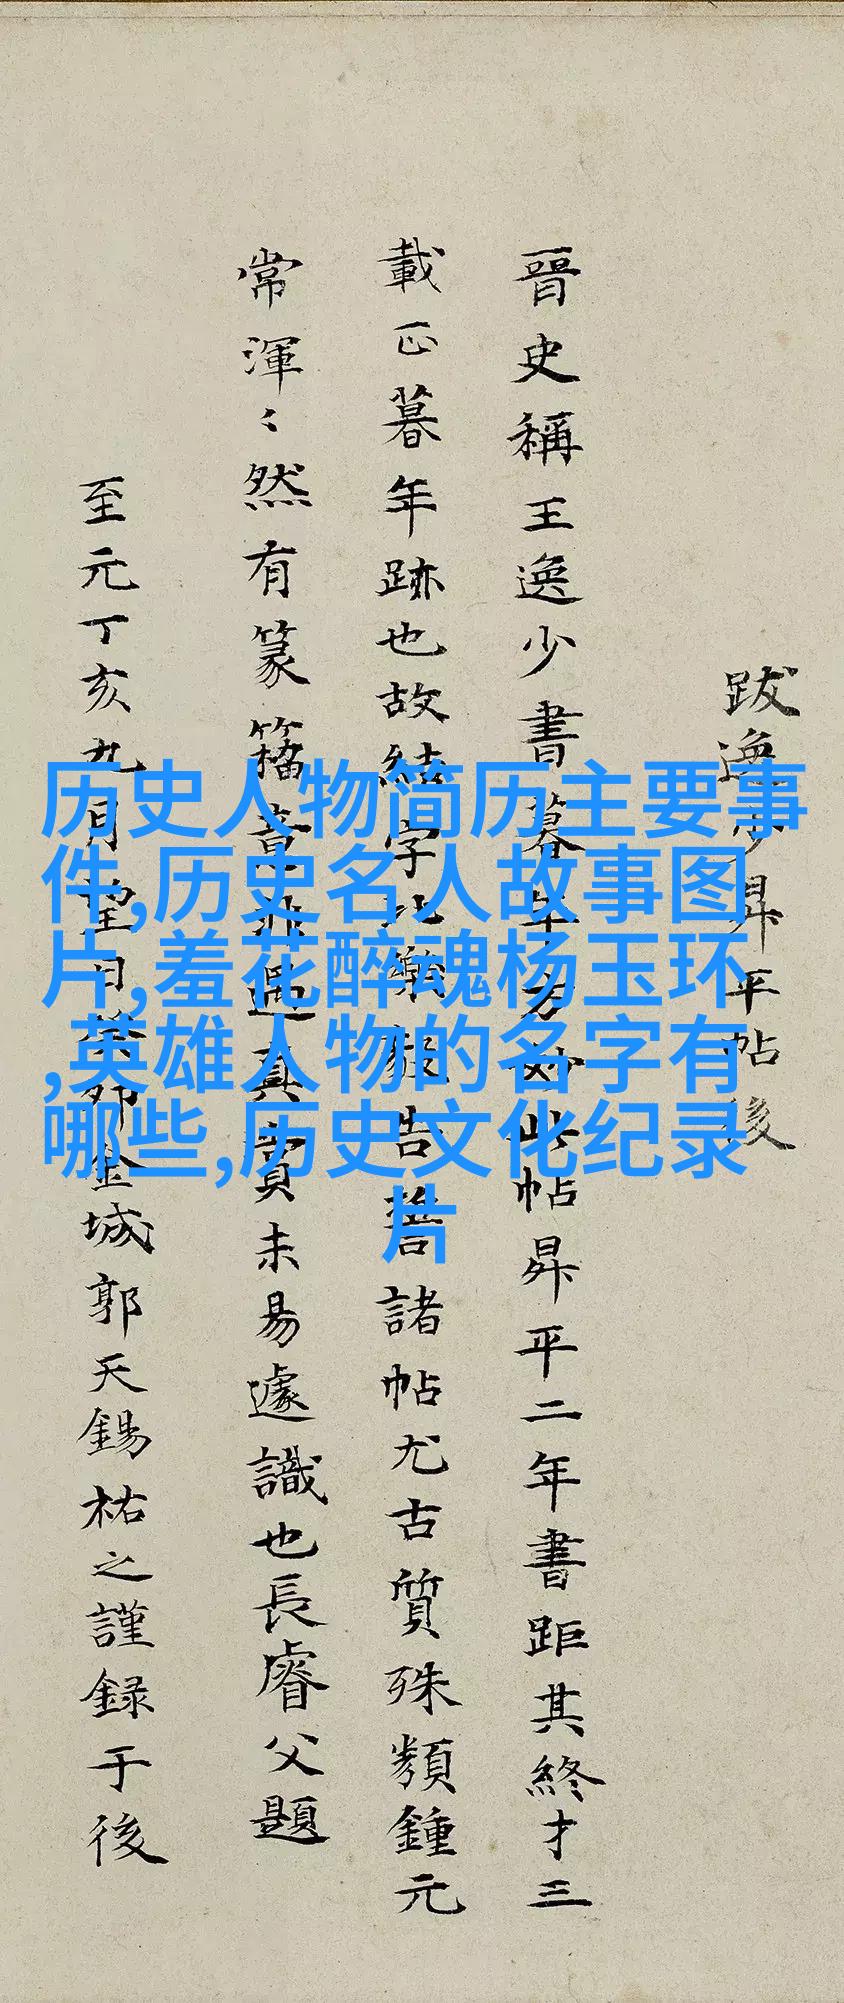 跋逸少昇平帖後
晉史稱王逸少書暮年方妙此帖昇平二年書距其終才三
載正暮年跡也故結字比樂毅告誓諸帖尤古質殊類鍾元
常渾〻然有篆籀意非遇真賞未易遽識也長睿父題
至元丁亥九月望日金城郭天錫祐之謹録于後
历史人物简历主要事
件,历史名人故事图
片,羞花醉魂杨玉环
,英雄人物的名字有
哪些,历史文化纪录
片